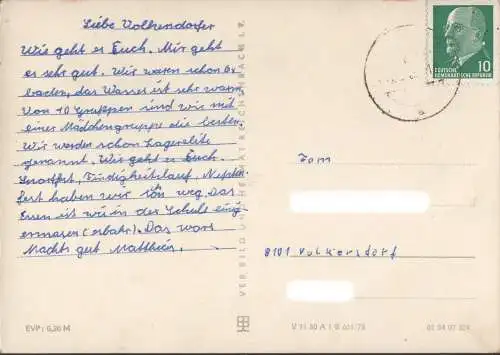 Liebe Volkersdorfer
Wie geht es Euch. Mir geht
es sehr gut. Wir waren schon 6x
baden, das Wasser ist sehr warm.
Von 10 Gruppen sind wir mit
einer Mädchengruppe die besten.
Wir werden schon Lagerelite
genannt. Wie geht es Euch.
Sportfest, Findigkeitslauf, Neptun-
fest haben wir schon weg. Das
Essen ist wie in der Schule einig-
ermasen (eßbahr). Das wars
Machts gut Matthias.
EVP: 0,20 M
VEB BILD UND HEIMAT REICHENBACH I. V.
10
DEUTSCHE
DEMOKRATISCHE REPUBLIK
Fam
8101 Volkersdorf
V 11 50 A 1